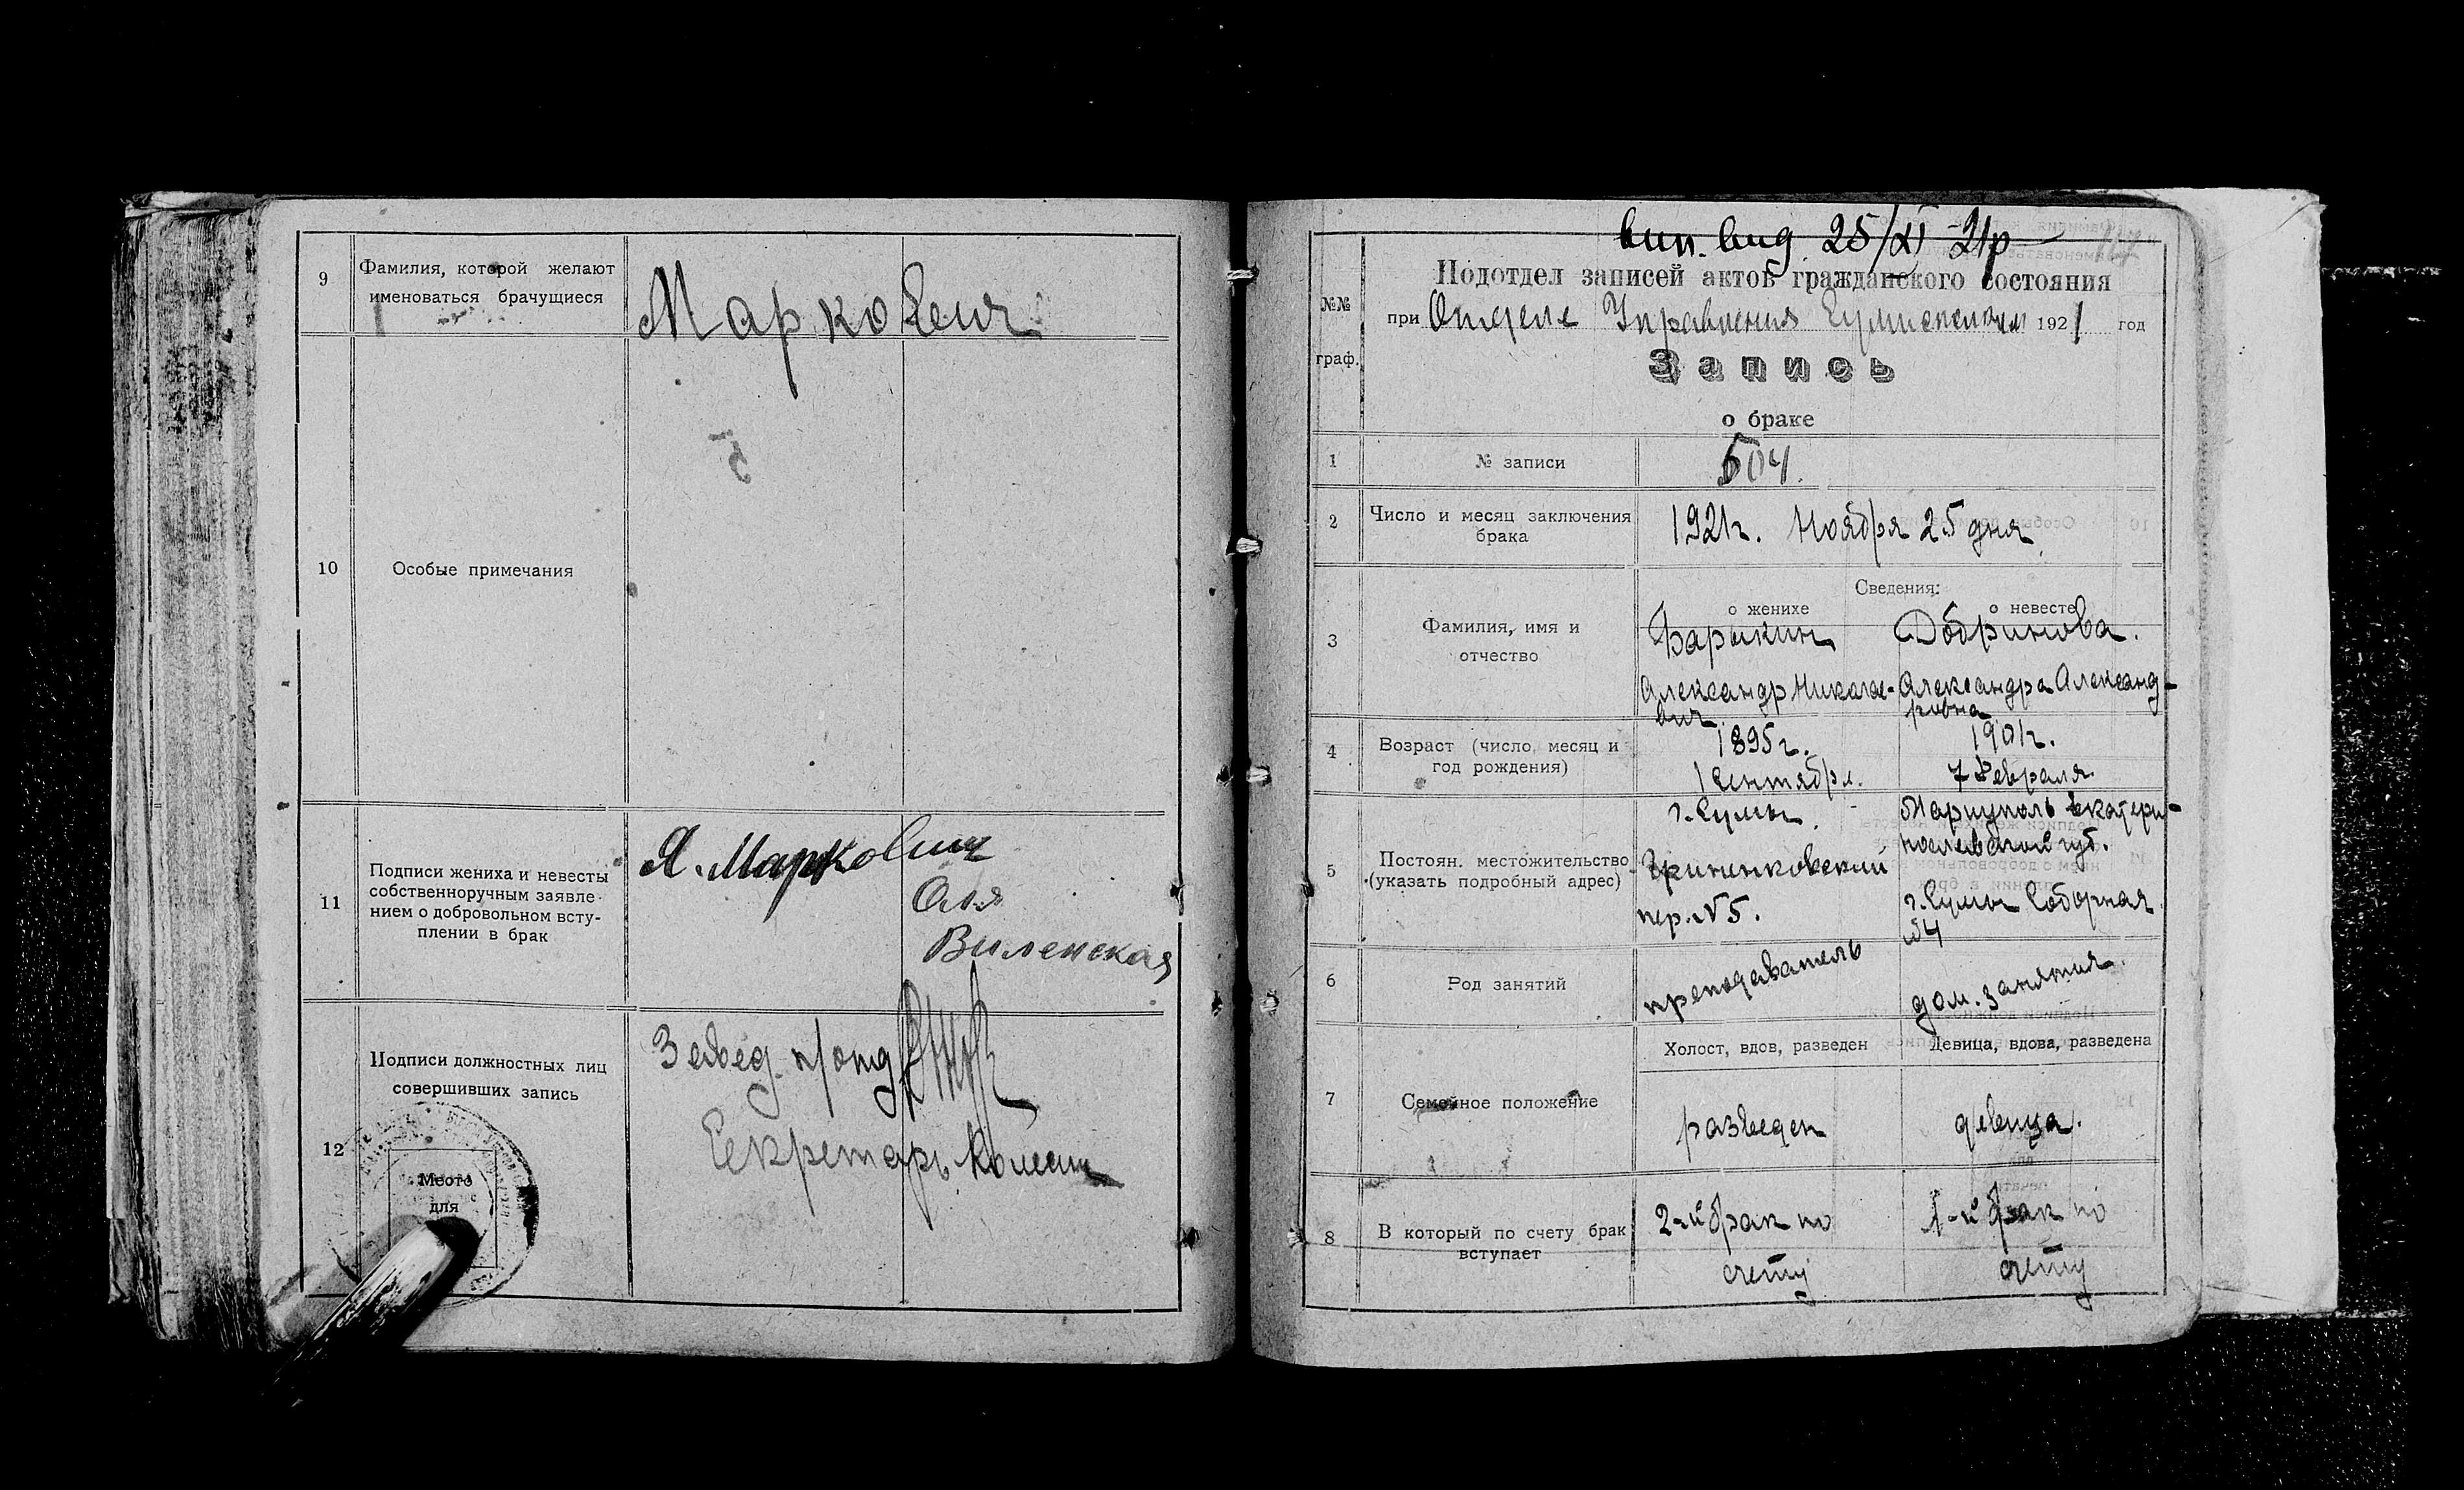 9
Фамилия, которой желают
именоваться брачущиеся
Маркович
10
Особые примечания
5
11
Подписи жениха и невесты
собственноручным заявле-
нием о добровольном всту-
плении в брак
Я. Маркович
Оля
Виленская
12
Подписи должностных лиц
совершивших запись
Завед. п/отд
Секретарь
Место
для
вип. вид. 25/XI-21р
№№
граф.
Подотдел записей актов гражданского состояния
при Отделе Управления 1921 год
Запись
о браке
1
№ записи
504.
2
Число и месяц заключения
брака
1921г. Ноября 25 дня
Сведения:
3
Фамилия, имя и
отчество
о женихе
Барыкин
Александр Николае-
вич
о невесте
Добринова.
Александра Александ-
ровна
4
Возраст (число, месяц и
год рождения)
1895г.
1 Сентября.
1901г.
7 Февраля.
5
Постоян. местожительство
(указать подробный адрес)
г. Сумы.
пер. № 5.
Мариуполь Екатери-
губ.
г. Сумы Соборная
6
Род занятий
преподаватель
дом. занятия.
7
Семейное положение
Холост, вдов, разведен
разведен
Девица, вдова, разведена
девица.
8
В который по счету брак
вступает
2-й брак по
счету
1-й брак по
счету